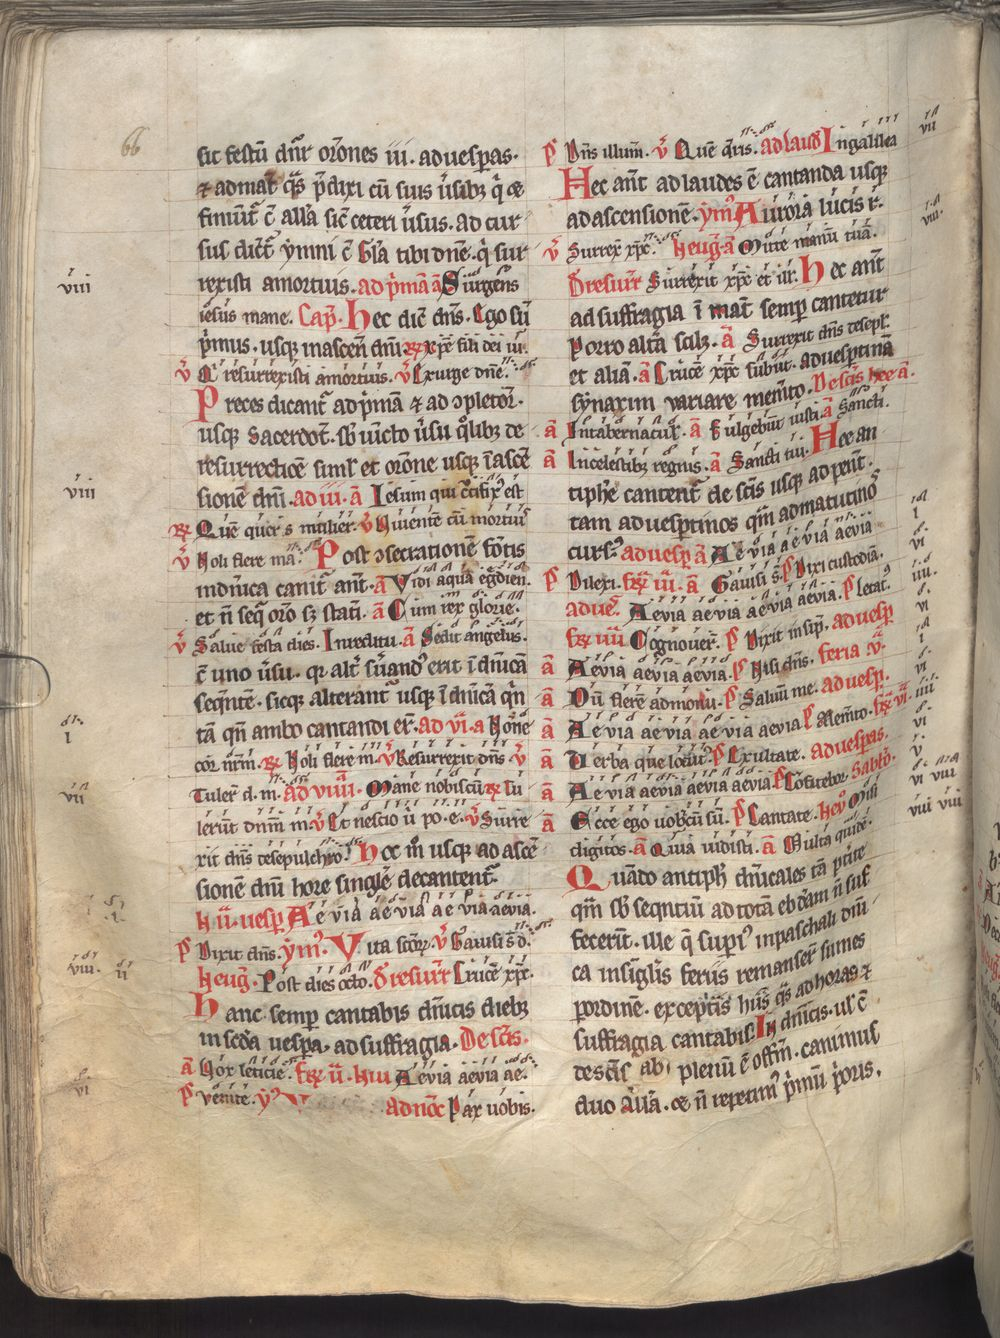 66
sit festū dn̄r orōnes iii. ad uesp̄as.
⁊ ad mat̄ q̄s p̄dixi cū suis ūsibȝ q̄ oē
finiūt̄ c̄ all'a sic̄ ceteri ūsus. ad cur
sus dict̄r ymni c̄ gl'a tibi dn̄e. q̄ sur
rexisti amortuis. ad p̄mā ā Surgens
iesus mane. Cap̄. Hec dic̄ dn̄s. Ego sū
p̄mus. usqȝ in ascen̄ dn̄i ℟ xp̄e fili dei ui.
℣ Q̄ resurrexisti amortuis. ℣ Exurge dn̄e.
Preces dicant̄ ad p̄mā ⁊ ad ↄpletor̄.
usqȝ Sacerdot̄. sb̄ uicto ūsu q̄libȝ de
resurrectiōe simi'r et orōne usqȝ ī ascē
sionē dn̄i. ad iii. ā Iesum qui c̄cifix' est
℟ Quē queris mulier. ℣ Uiuentē cū mortuis
℣ Noli flere ma. Post ↄsecrationē fōtis
in dn̄ica canit̄ ant̄. ā Vidi aquā eḡdien.
et n̄ seq̄r orō sȝ statī. ā Cum rex glorie.
℣ Salue festa dies. In reditu. ā Sedit angelus.
c̄ uno ūsu. qȝ alt̄ s̄uand' erit ī dn̄icā
seq̄nte. sicqȝ alterant̄ usqȝ ī dn̄icā q̄n
tā q̄n ambo cantandi er̄t. ad vi. a Nōne
cor nr̄m. ℟ Noli flere m. ℣ Resurrexit dn̄s ℣
Tuler̄ d. m. ad viiii. Mane nobiscū ℟ Tu
lerūt dnm̄ m. ℣ Et nescio u po. e. ℣ Surre
xit dn̄s de sepulchro. Hoc m̄ usqȝ ad ascē
sionē dn̄i hore singlē decantent̄.
ii. uesp Aeuia aeuia aeuia aeuia.
p̄ Dixit dn̄s. ym̄. Vita scōr̄. ℣ Gauisi s̄ d.
In euḡ. Post dies octo. D' resurr̄ Crucē xp̄c.
Hanc semp̄ cantabis dn̄icis diebȝ
in scd̄a uespa. ad suffragia. De scīs.
ā Uox leticie. Fr̄ ii. Aeuia aeuia ae.
p̄ Venite. y' V ad noc̄ Pax uobis.
p̄ Dn̄s illum̄. ℣ Quē q̄ris. ad laud̄ In galilea
Hec ant̄ ad laudes ē cantanda usqȝ
ad ascensionē. ym̄' Aurora lucis r̄.
℣ Surrex̄ xp̄c. In euḡ ā Mitte manū tuā.
D' resurr̄ Surrexit xp̄c et il'r. Hec ant̄
ad suffragia ī mat̄ semp̄ cantetur
porro altā scil'ȝ. ā Surrexit dn̄s de sepl'.
et aliā. ā Crucē xp̄c subiit. ad uesptinā
synaxim uariare mem̄to. De scīs hec ā.
ā In tabernacul'. ā Fulgebūt iusti. ā Sancti.
ā In celestibȝ regnis. ā Sancti tui. Hee an
tiphē cantent̄ de scīs usqȝ ad pent̄.
tam ad uesptinos q̄m ad matutinos
curs'. ad uesp̄ ā Aeuia aeuia aeuia
p̄ Dilexi. Fr̄ iii. ā Gauisi s̄. p̄ Dixi custodiā.
ad ue'. Aeuia aeuia aeuia aeuia. p̄ Letat'.
Fr̄ iiii Cognouer̄. p̄ Dixit insip̄. ad uesp̄
ā Aeuia aeuia aeuia. p̄ Nisi dn̄s. feria v.
ā Dū flerē ad monū. p̄ Saluū me. ad uesp̄.
ā Aeuia aeuia aeuia aeuia p̄ Mem̄to. Fr̄ vi
ā Uerba que locūt'. p̄ Exultate. ad uesp̄as.
ā Aeuia aeuia aeuia aeuia p̄ Cōfitebor. Sabbō.
ā Ecce ego uobcū sū. p̄ Cantate. In eu' Misi
digitos. ā Quia uidisti. ā Multa quidē.
Quando antiph̄ dn̄icales tā p̄nte
q̄m sb̄ seq̄ntiū ad totā ebdom̄ n̄ suf
fecerīt. ille q̄ supi' in paschali dn̄i
ca insiḡlis feriis remanser̄ sumes
p ordinē. exceptis his q̄s ad horas ⁊
suffragia cantabis. In dn̄icis. ul' ē
de scīs ab plenū ē offm̄. canimus
duo All'a. oē n̄ repetim' p̄mū p̄oris.
viii
viii
i
vii
viii. ii
vi
vii
viii.
i
vi
iiii.
vi
i
vi.
iiii.
vi
v
vi viii
viii viii